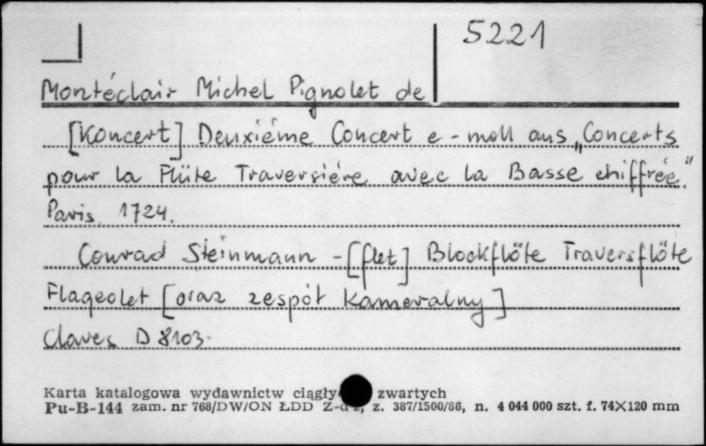 5221
Montéclair Michel Pignolet de
[Koncert] Deuxiéme Concert e-moll aus „Concerts
pour la Flüte Traversiére avec la Basse chiffrée."
Paris, 1724.
Conrad Steinmann - [flet] Blockflöte Traversflöte
Flageolet [oraz zespół kameralny]
Claves D 8103.
Karta katalogowa wydawnictw ciągły zwartych
Pu-B-144 zam. nr 768/DW/ON ŁDD z. 387/1500/86, n. 4 044 000 szt. f. 74×120 mm